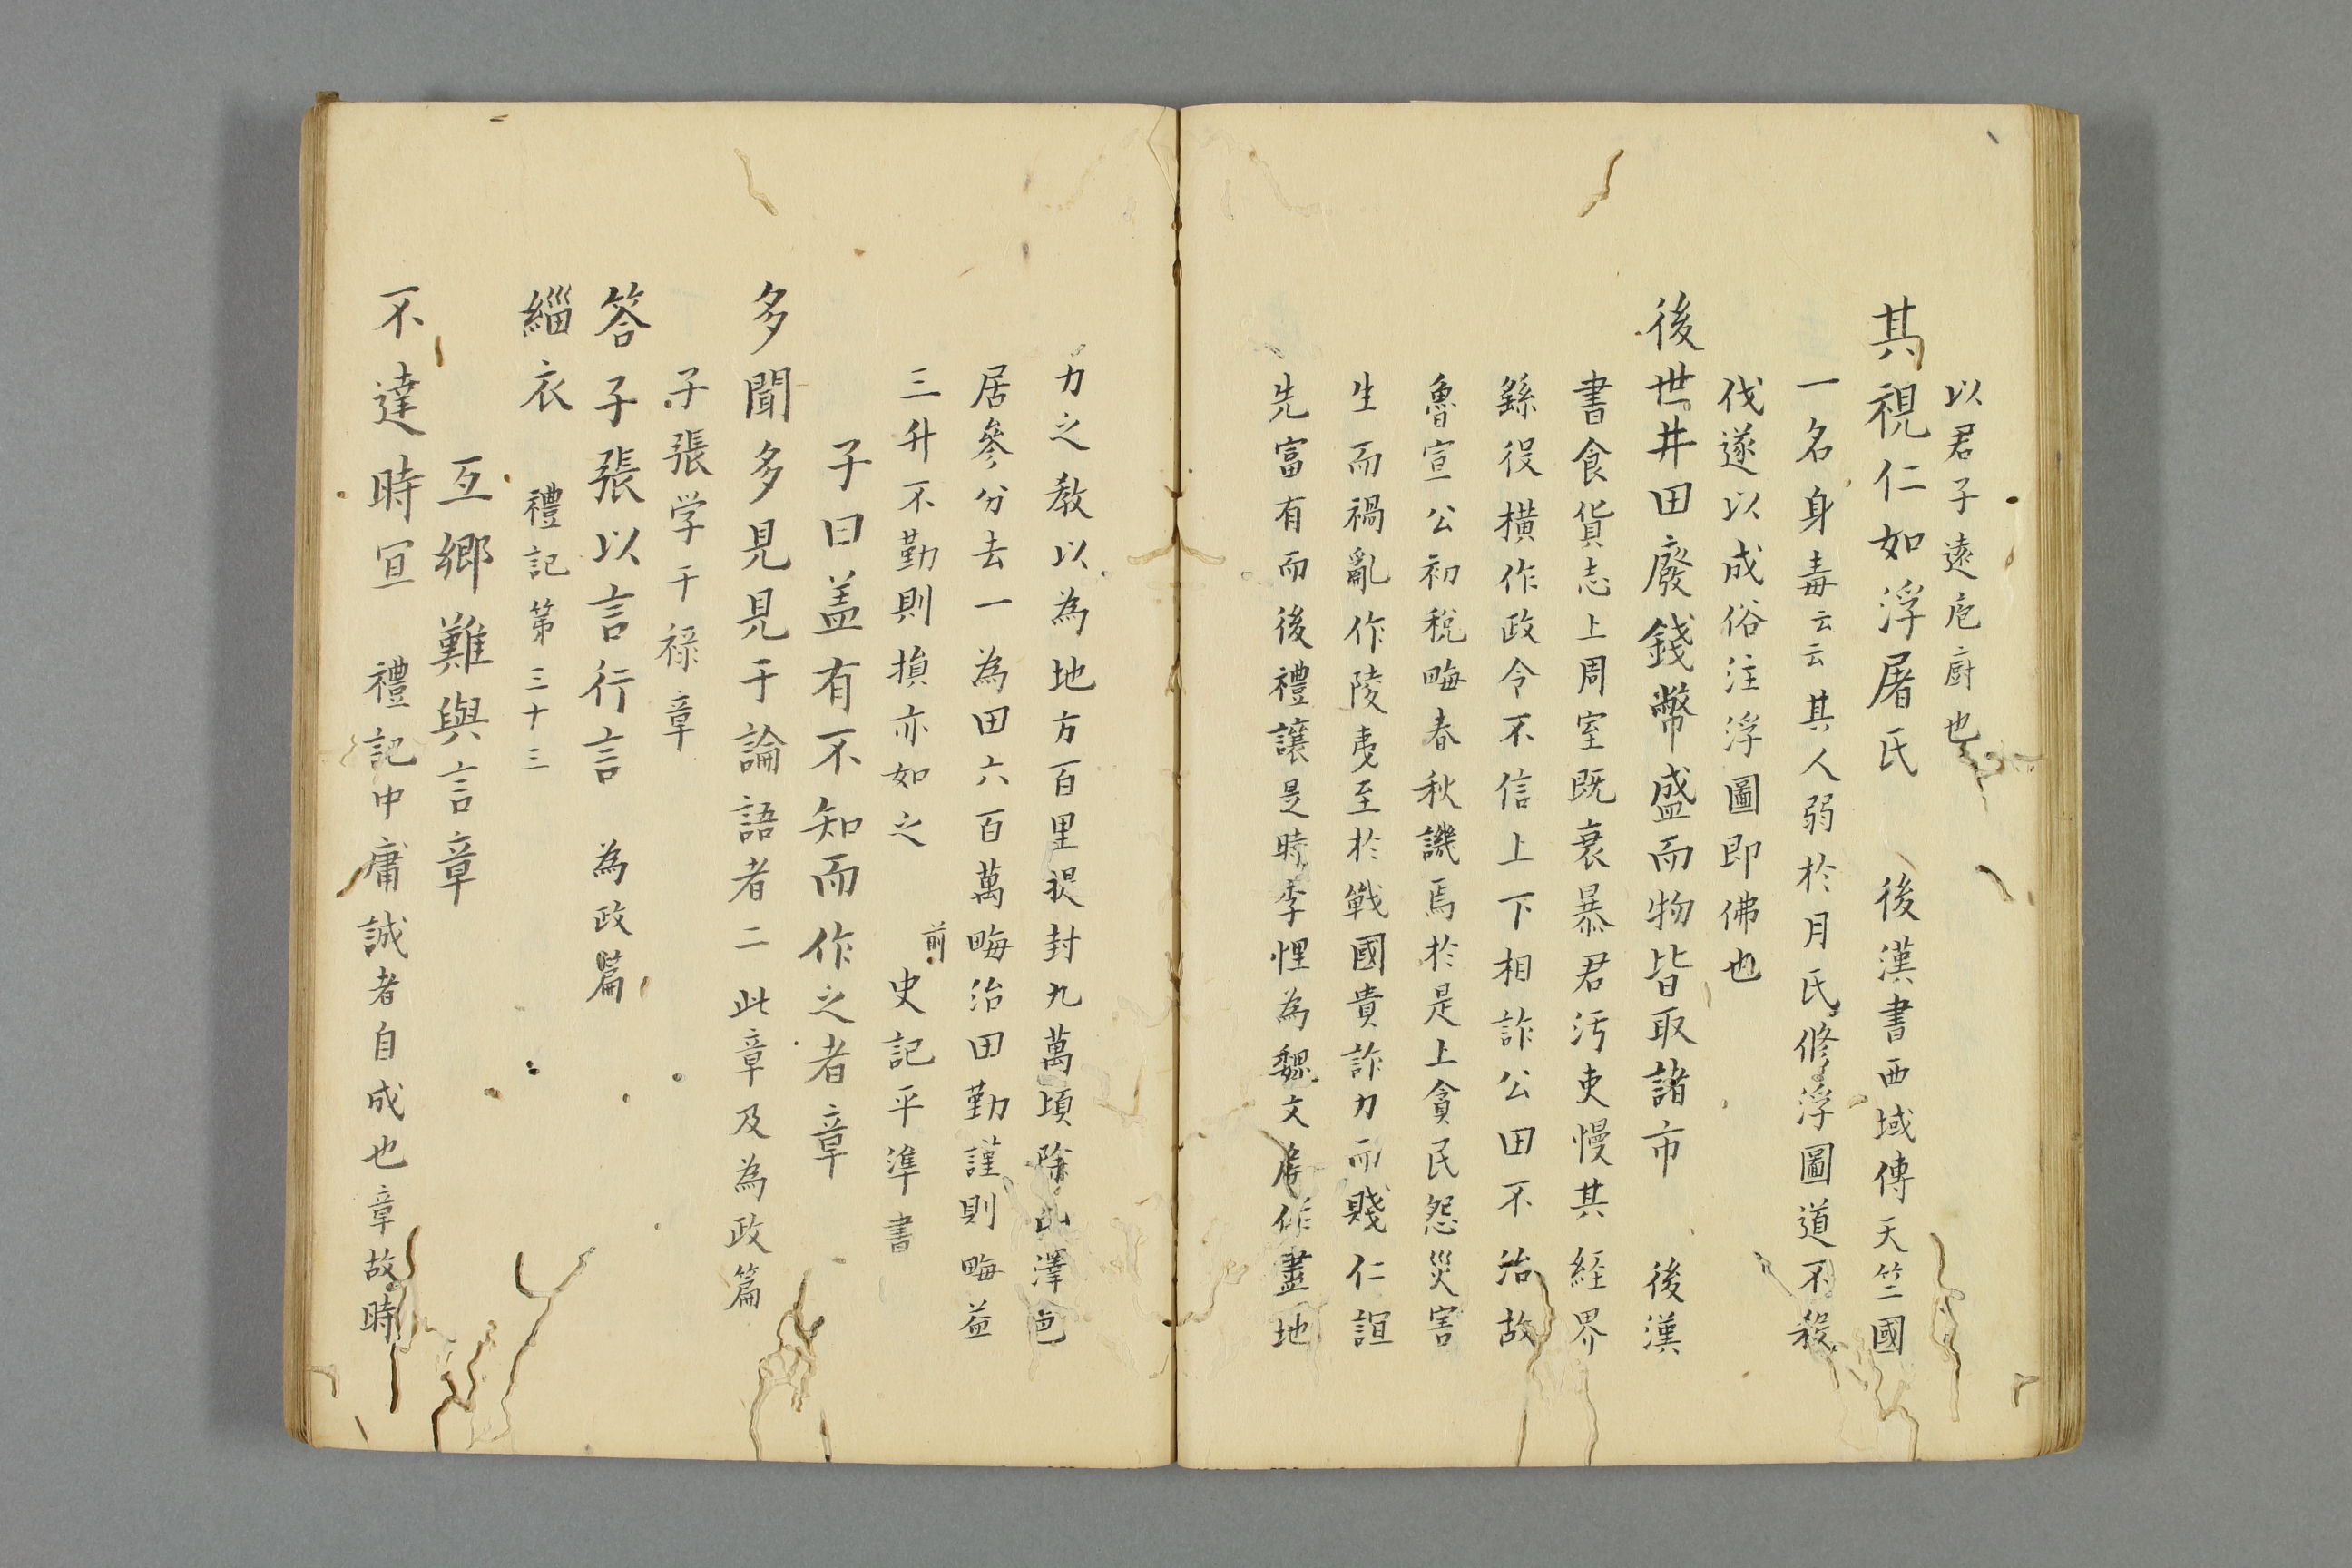 以君子遠庖廚也
其視仁如浮屠氏　後漢書西域傳天竺國
一名身毒云云其人弱於月氏修浮圖道不殺
伐遂以成俗注浮圖即佛也
後世井田廢錢幣盛而物皆取諸市　後漢
書食貨志上周室既衰暴君汚吏慢其経界
繇役橫作政令不信上下相詐公田不治故
魯宣公初税畮春秋譏焉於是上貪民怨災害
生而禍亂作陵夷至於戰國貴詐力而賤仁誼
先富有而後禮讓是時李悝為魏文侯作盡地
力之教以為地方百里提封九萬頃除山澤邑
居參分去一為田六百萬畮治田勤謹則畮益
三升不勤則損亦如之　前　史記平準書
子曰盖有不知而作之者章
多聞多見見于論語者二此章及為政篇
子張学干禄章
答子張以言行言　為政篇
緇衣　禮記第三十三
互鄉難與言章
不達時宜　禮記中庸誠者自成也章故時